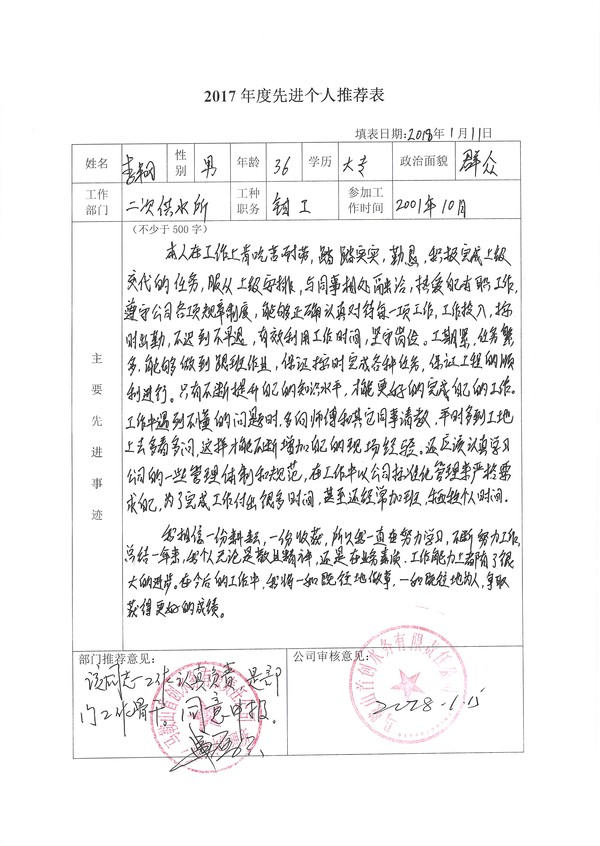 2017 年度先进个人推荐表
填表日期:2018年1月11日
姓名 李 性别 男 年龄 36 学历 大专 政治面貌 群众
工作部门 二次供水所 工种职务 钳工 参加工作时间 2001年10月
主要先进事迹
(不少于 500 字)
本人在工作上肯吃苦耐劳，踏踏实实，勤恳，积极完成上级
交代的任务，服从上级安排，与同事相处融洽，热爱自己本职工作，
遵守公司各项规章制度，能够正确认真对待每一项工作，工作投入，按
时出勤，不迟到不早退，有效利用工作时间，坚守岗位。工期紧，任务繁
多，能够做到跟班作业，保证按时完成各种任务，保证工程的顺
利进行。只有不断提升自己的知识水平，才能更好的完成自己的工作。
工作中遇到不懂的问题时，多向师傅和其它同事请教，平时多到工地
上去多看多问，这样才能不断增加自己的现场经验。还应该认真学习
公司的一些管理体制和规范，在工作中以公司标准化管理来严格要
求自己，为了完成工作付出很多时间，甚至还经常加班，牺牲个人时间。
我相信一份耕耘，一份收获，所以我一直在努力学习，不断努力工作。
总结一年来，我个人无论是敬业精神，还是在业务素质、工作能力上都有了很
大的进步。在今后的工作中，我将一如既往地做事，一如既往地为人，争取
获得更好的成绩。
部门推荐意见：
该同志工作认真负责，是部
门工作骨干。同意申报。
公司审核意见：
马鞍山首创水务有限责任公司
2018.1.15